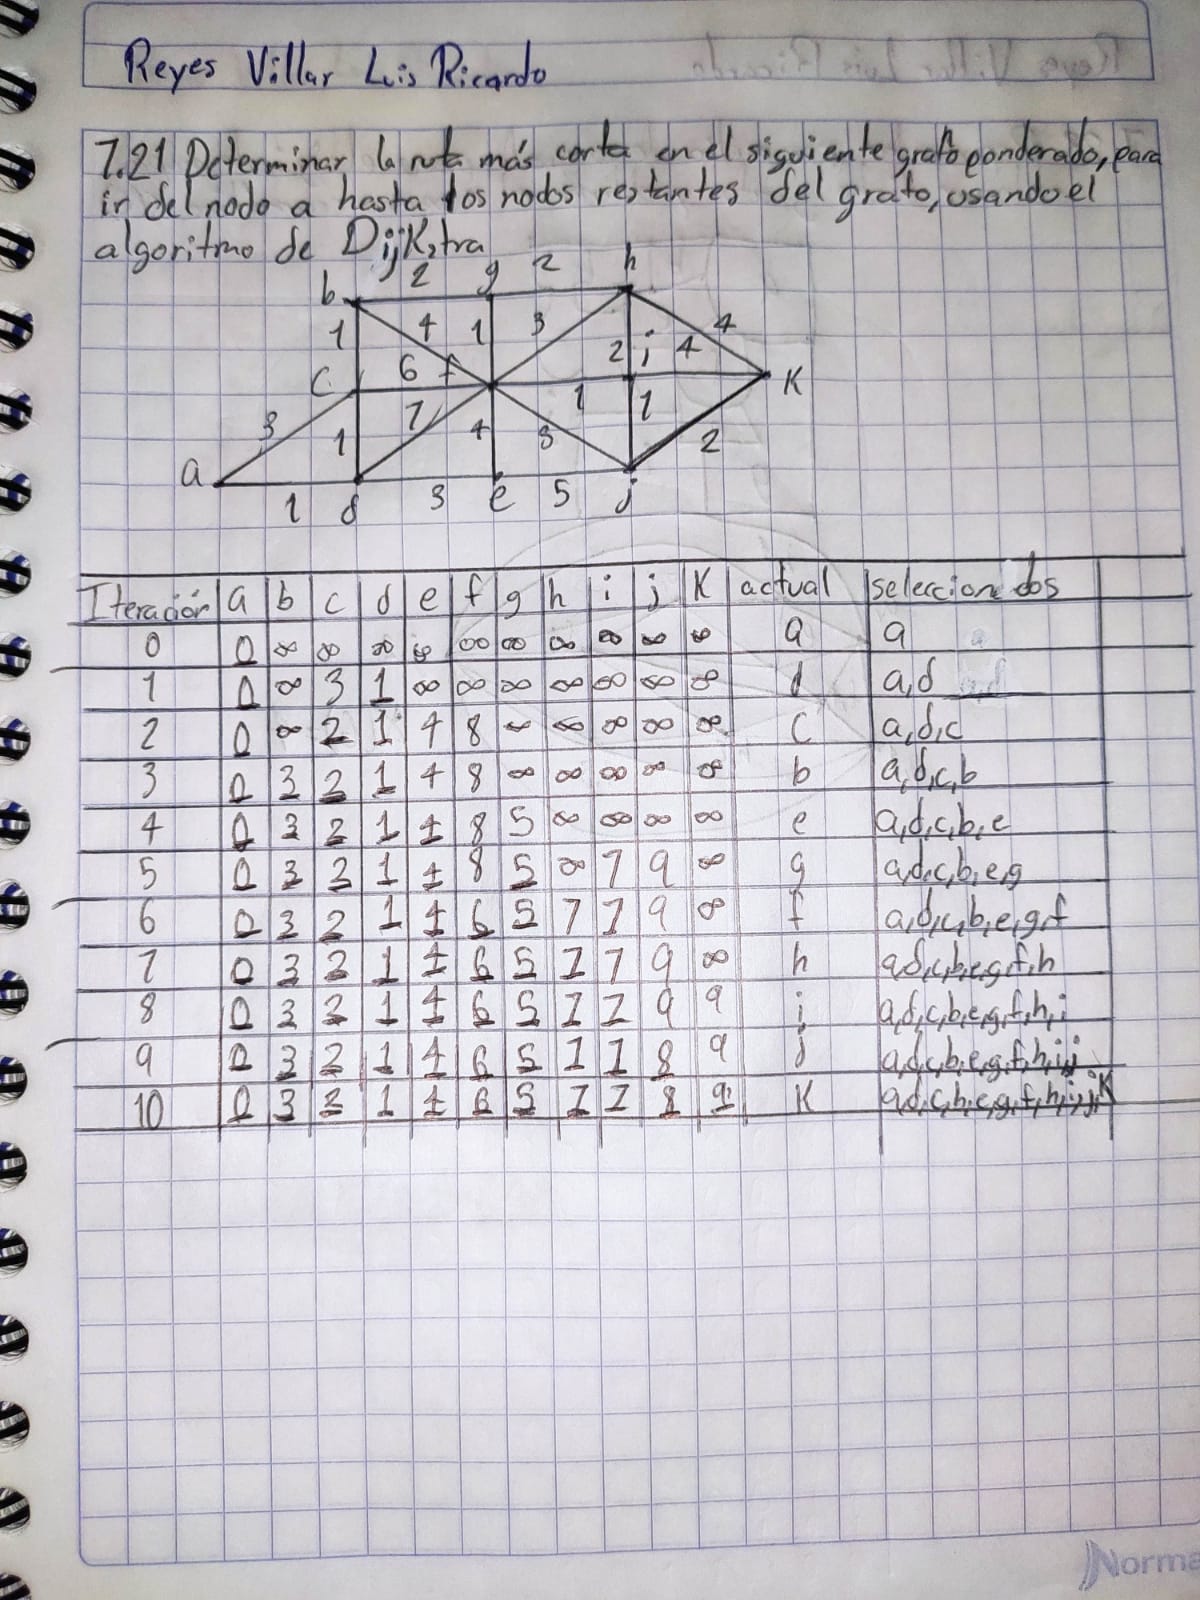 Reyes Villar Luis Ricardo
7.21 Determinar la ruta más corta en el siguiente grafo ponderado, para
ir del nodo a hasta los nodos restantes del grafo, usando el
algoritmo de Dijkstra
b 2 g 2 h
1 4 1 3 2 i 4 4
c 6 f 1 1 K
3 1 7 4 3 2
a 1 d 3 e 5 j
Iteración a b c d e f g h i j K actual seleccionados
0 0 ∞ ∞ ∞ ∞ ∞ ∞ ∞ ∞ ∞ ∞ a a
1 0 ∞ 3 1 ∞ ∞ ∞ ∞ ∞ ∞ ∞ d a,d
2 0 ∞ 2 1 4 8 ∞ ∞ ∞ ∞ ∞ c a,d,c
3 0 3 2 1 4 8 ∞ ∞ ∞ ∞ ∞ b a,d,c,b
4 0 3 2 1 4 8 5 ∞ ∞ ∞ ∞ e a,d,c,b,e
5 0 3 2 1 4 8 5 ∞ 7 9 ∞ g a,d,c,b,e,g
6 0 3 2 1 4 6 5 7 7 9 ∞ f a,d,c,b,e,g,f
7 0 3 2 1 4 6 5 7 7 9 ∞ h a,d,c,b,e,g,f,h
8 0 3 2 1 4 6 5 7 7 9 9 i a,d,c,b,e,g,f,h,i
9 0 3 2 1 4 6 5 7 7 8 9 j a,d,c,b,e,g,f,h,i,j
10 0 3 2 1 4 6 5 7 7 8 9 K a,d,c,b,e,g,f,h,i,j,K
Norma